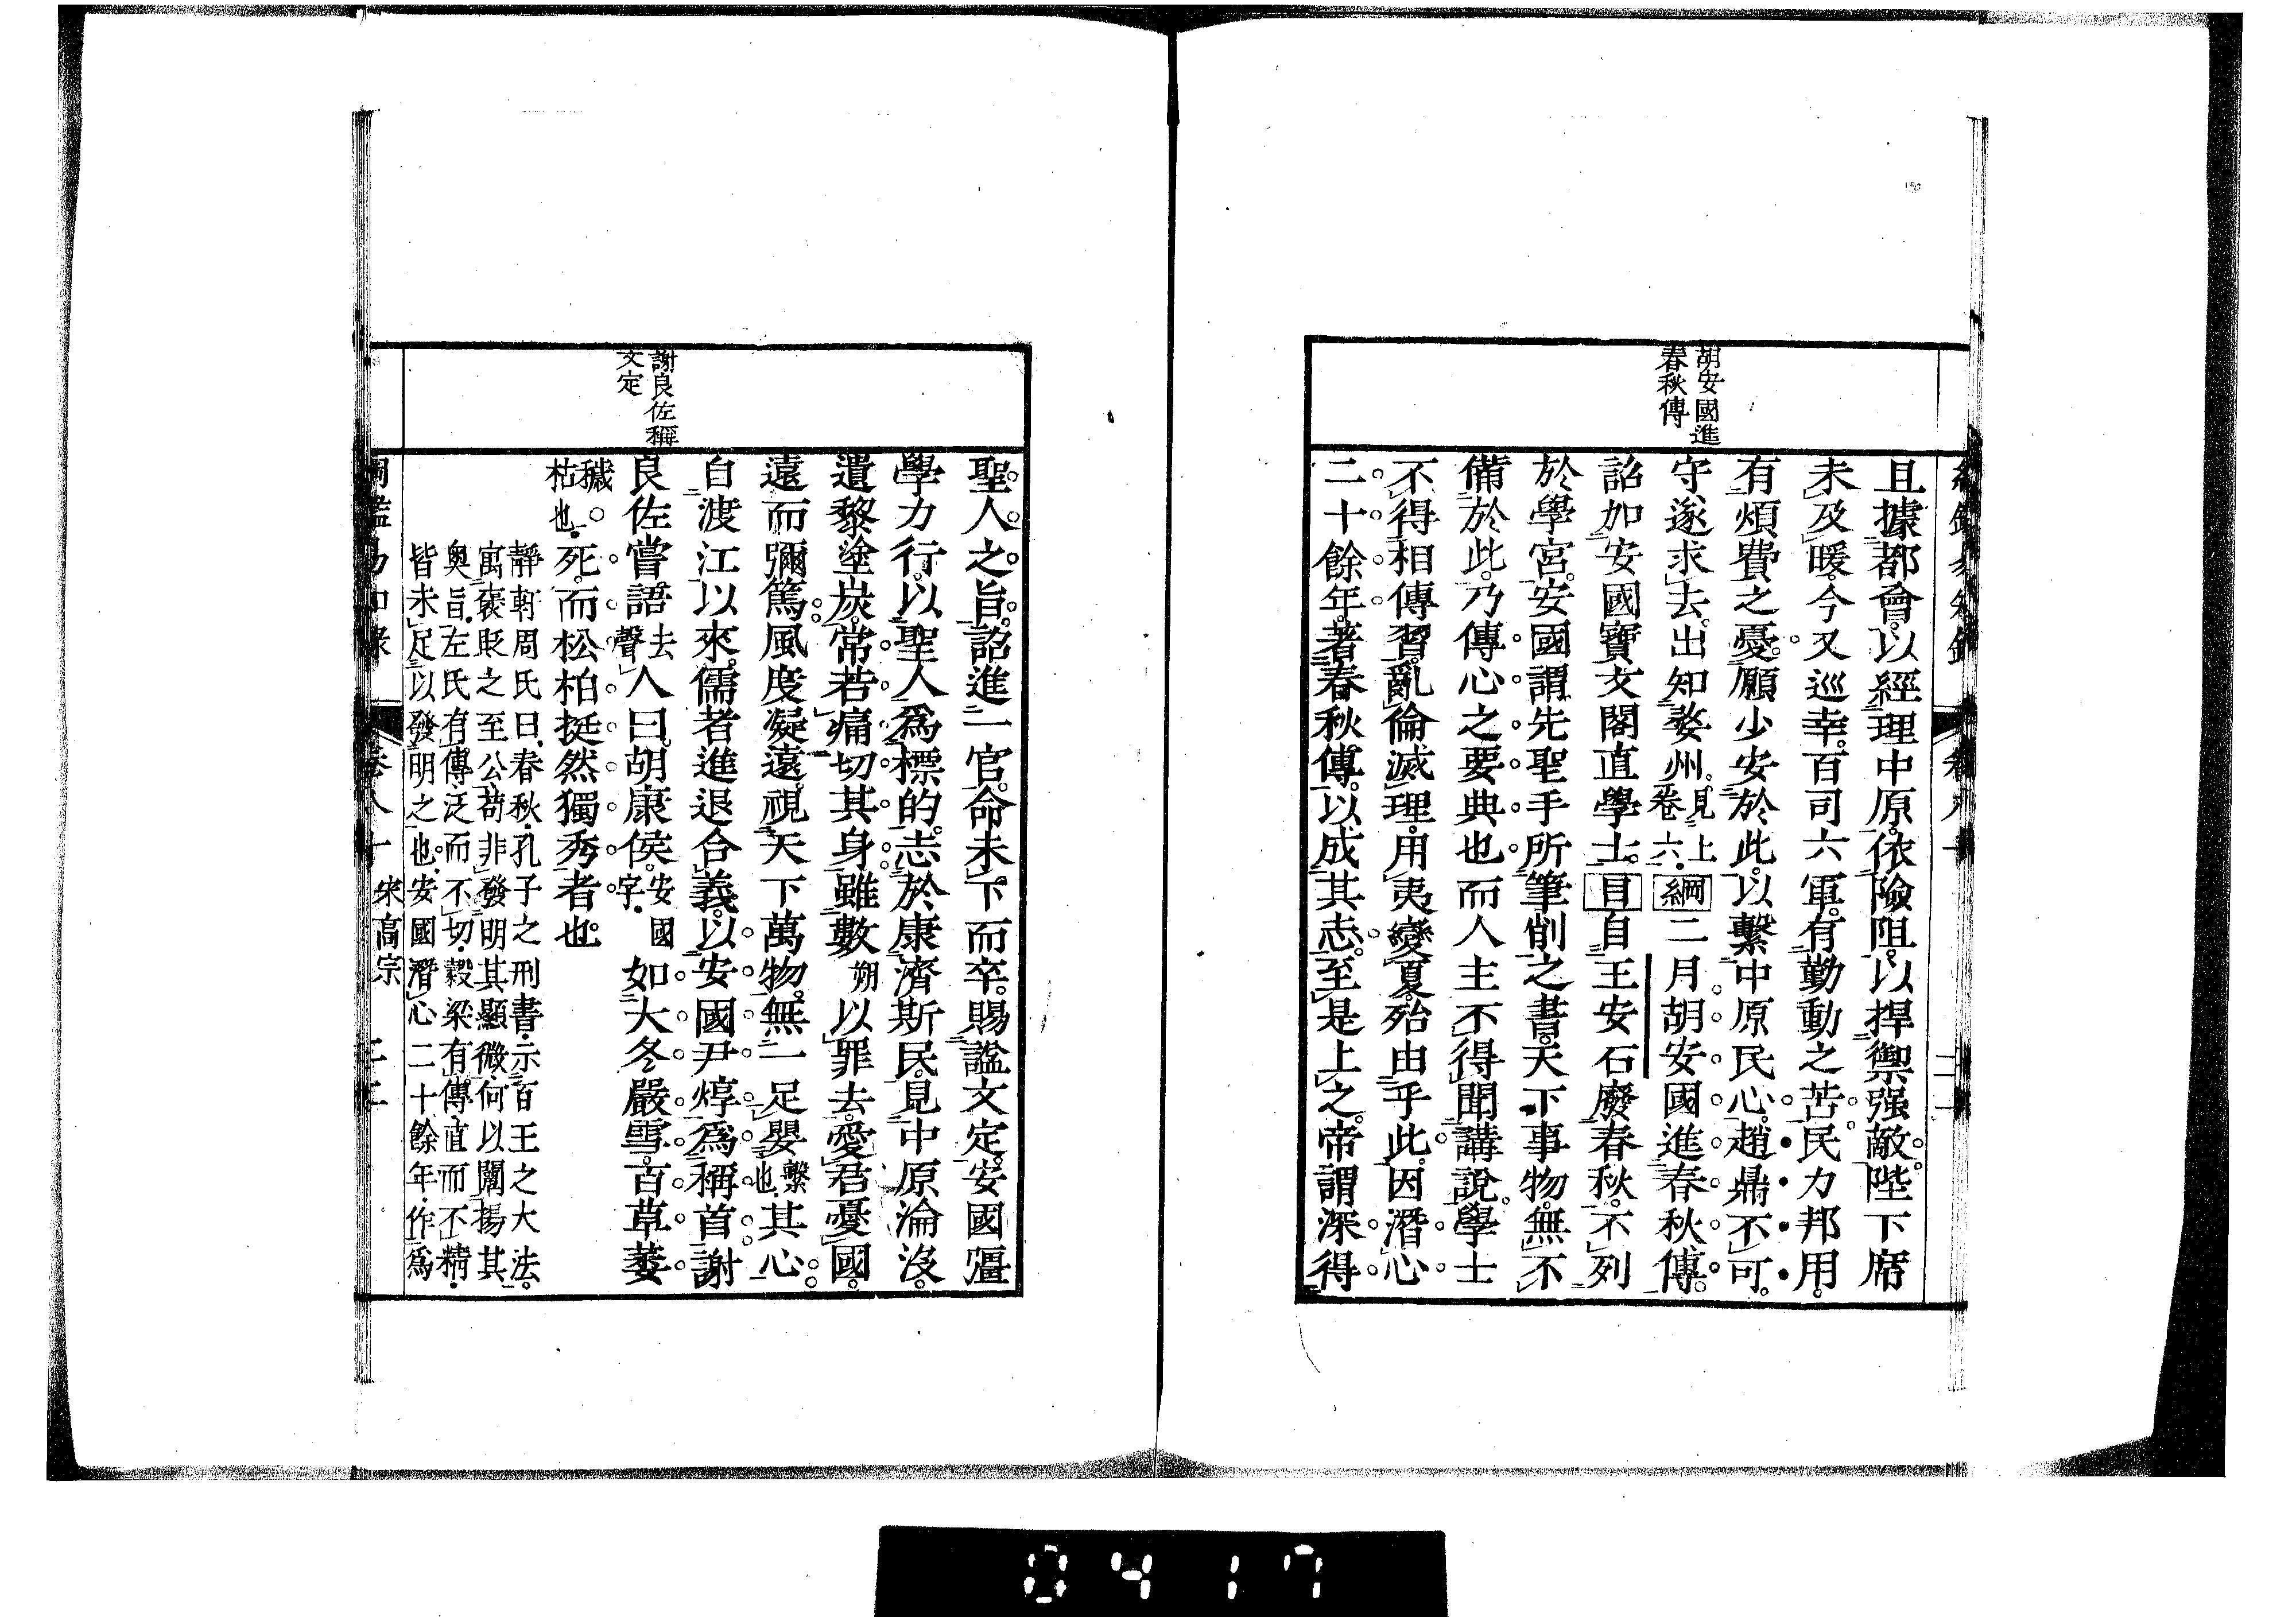 胡安國進
春秋傳
且據都會。以經理中原。依險阻。以捍禦强敵。陛下席
未及暖。今又巡幸。百司六軍。有勤動之苦。民力邦用。
有煩費之憂。願少安於此。以繫中原民心。趙鼎不可。
守遂求去。出知婺州。見上卷六。綱二月胡安國進春秋傳。
詔加安國寶文閣直學士。目自王安石廢春秋。不列
於學宮。安國謂先聖手所筆削之書。天下事物。無不
備於此。乃傳心之要典也。而人主不得聞講說。學士
不得相傳習。亂倫滅理。用夷變夏。殆由乎此。因潛心
二十餘年。著春秋傳。以成其志。至是上之。帝謂深得
謝良佐稱
文定
聖人之旨。詔進一官。命未下而卒。賜諡文定。安國彊
學力行。以聖人爲標的。志於康濟斯民。見中原淪沒。
遺黎塗炭。常若痛切其身。雖數朔以罪去。愛君憂國。
遠而彌篤。風度凝遠。視天下萬物。無一足嬰繫也.其心。
自渡江以來。儒者進退合義。以安國尹焞爲稱首。謝
良佐嘗語去聲人曰。胡康侯。安國字.如大冬嚴雪。百草萎
穢。枯也.死。而松柏挺然獨秀者也。
靜軒周氏曰.春秋.孔子之刑書.示百王之大法。
寓褒貶之至公.苟非發明其顯微.何以闡揚其
奧旨.左氏有傳.泛而不切.穀梁有傳.直而不精.
皆未足以發明之也.安國潛心二十餘年.作爲
宋高宗